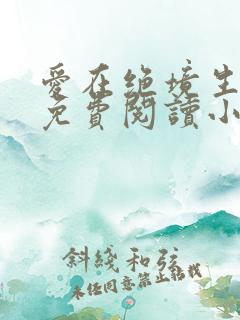 愛在絕境生
免費閱讀小
斜綫和弦
未經同意禁止轉載